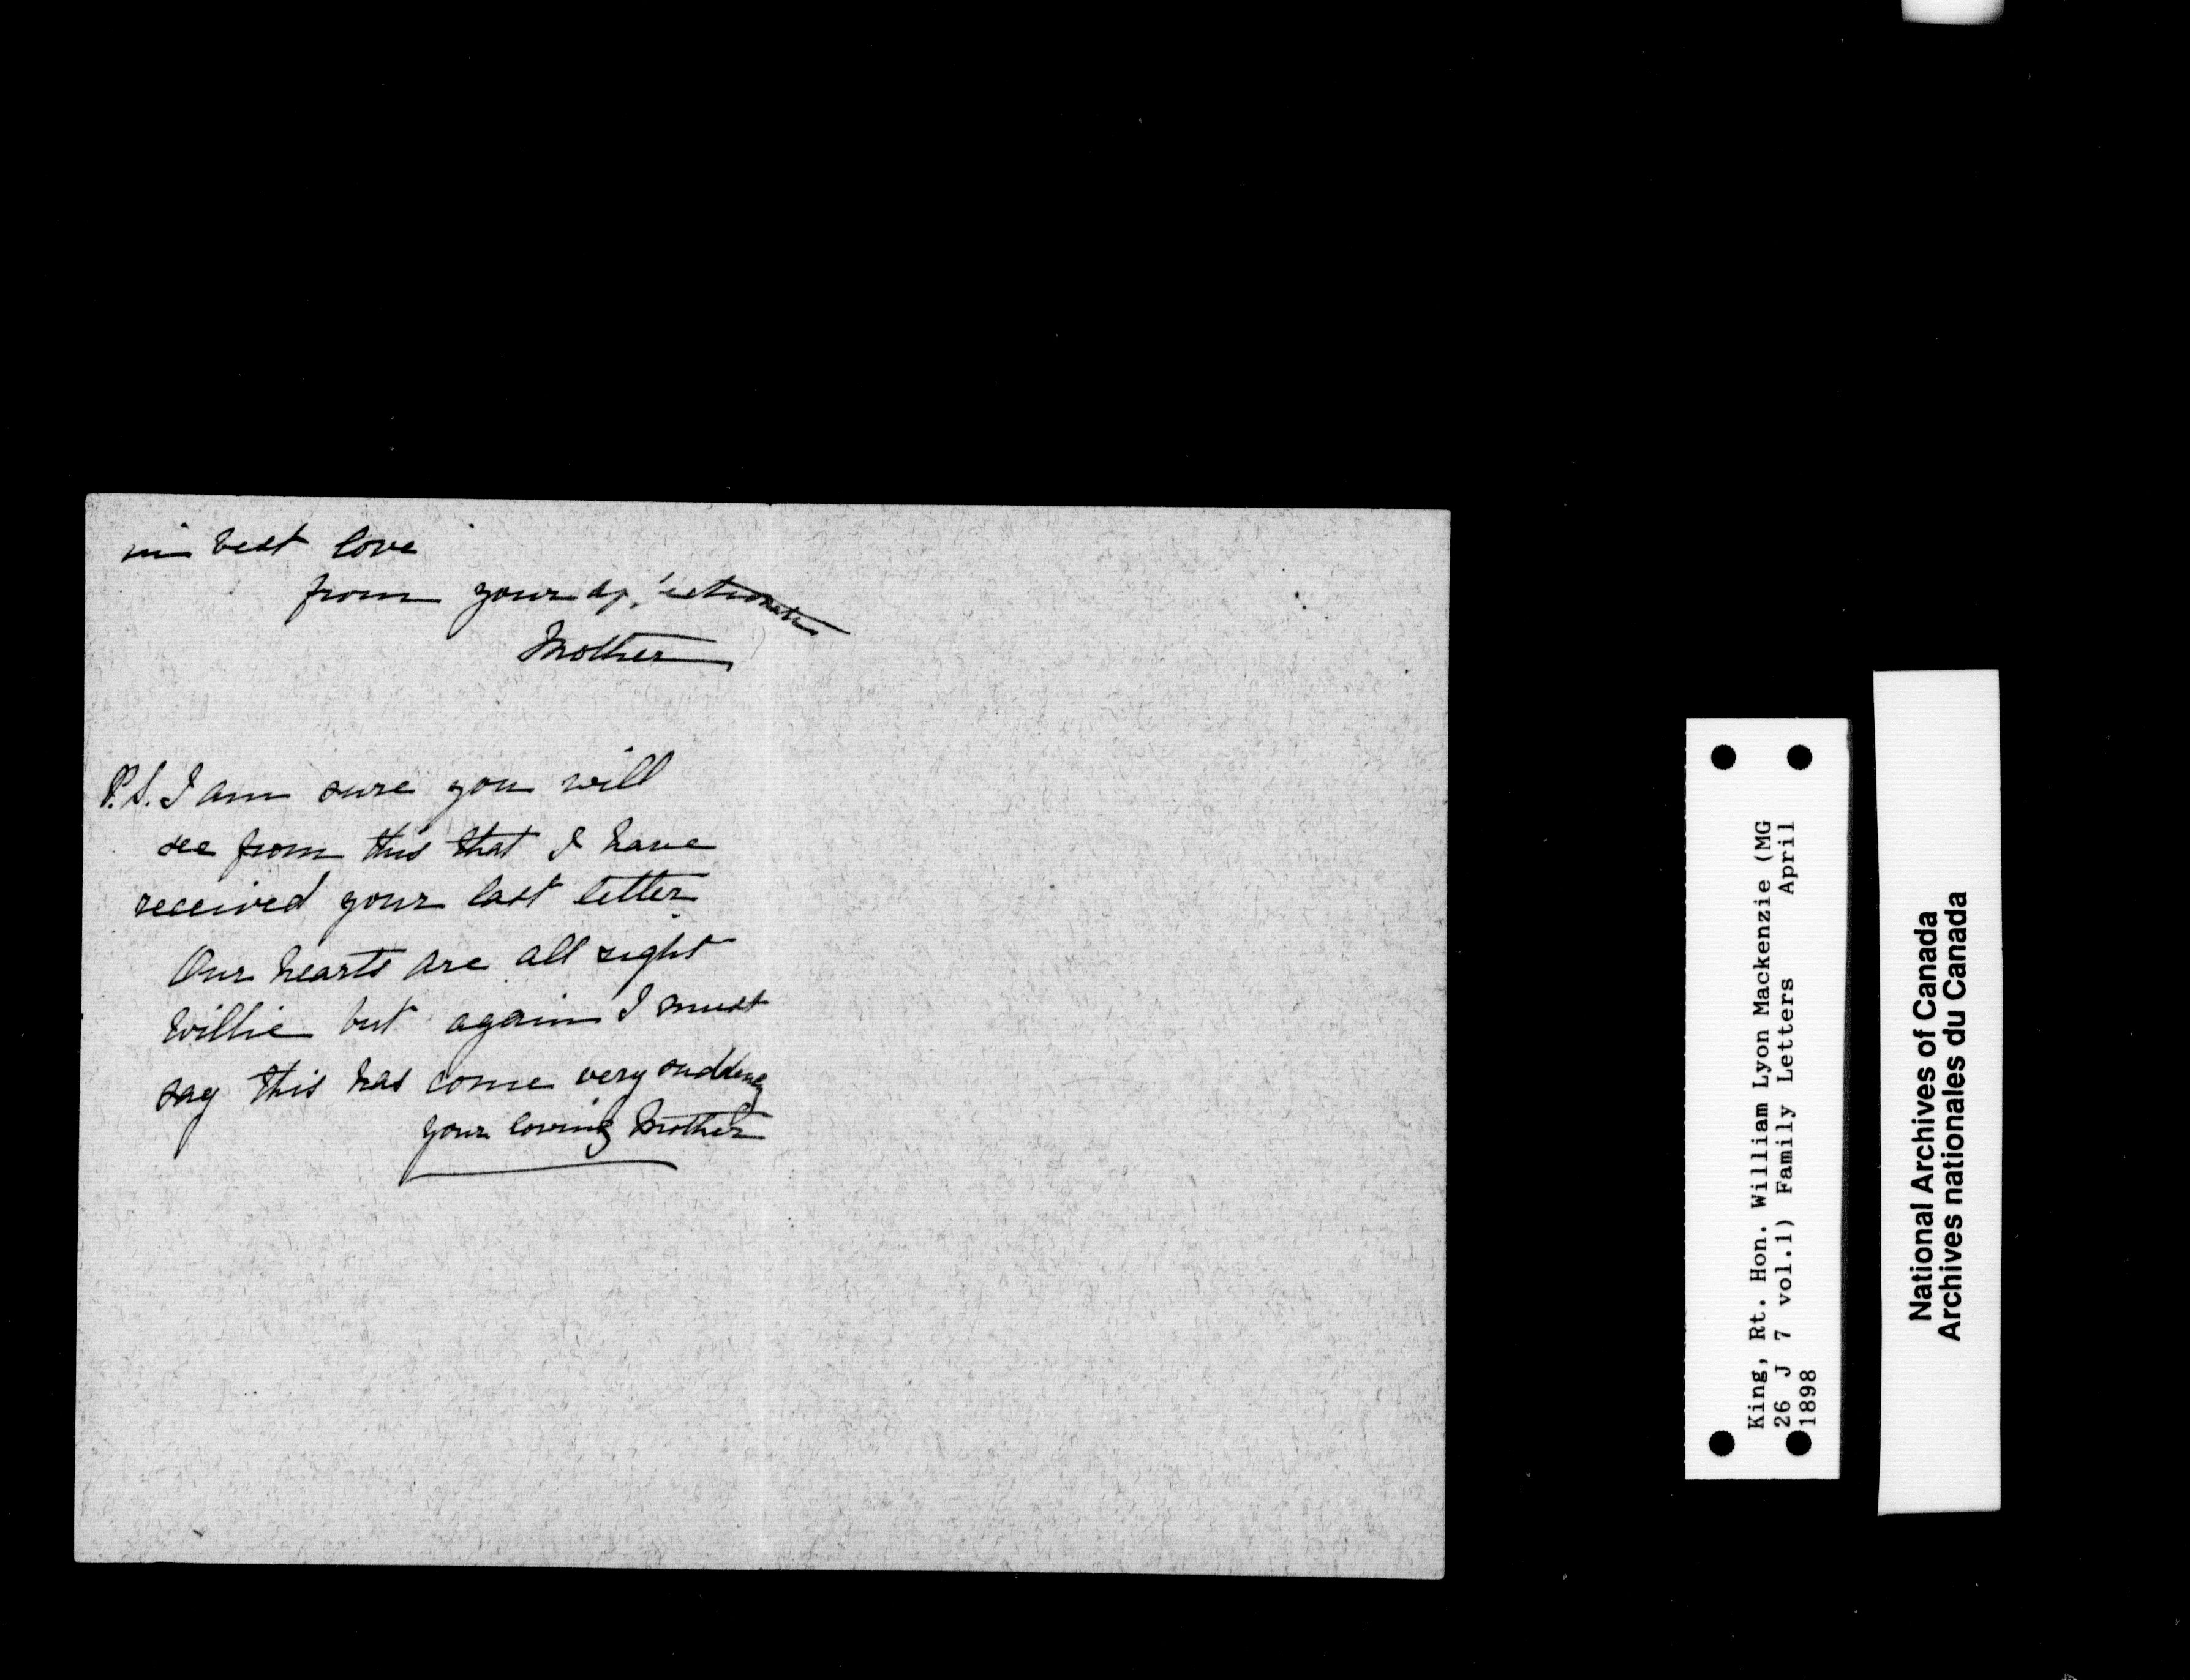 in best love
from your affectionate
Mother
P.S. I am sure you will
see from this that I have
received your last letter.
Our hearts are all right
Willie but again I must
say this has come very suddenly
your loving Mother
King, Rt. Hon. William Lyon Mackenzie (MG
26 J 7 vol.1) Family Letters April
1898
National Archives of Canada
Archives nationales du Canada